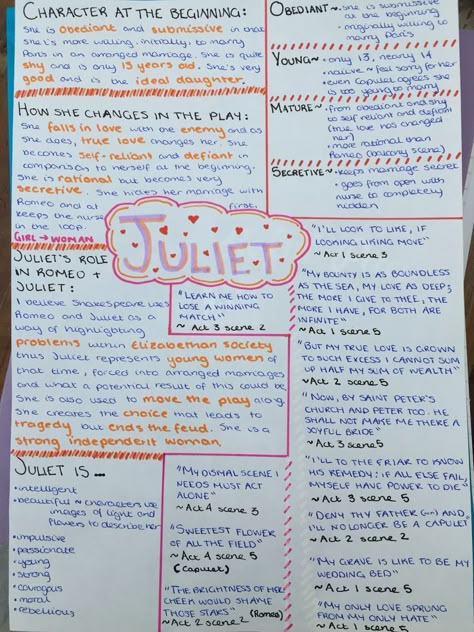 CHARACTER AT THE BEGINNING:
She is obediant and submissive in that
she's more willing, initially, to marry
Paris in an arranged marriage. She is quite
shy and is only 13 years old. She's very
good and is the ideal daughter.
HOW SHE CHANGES IN THE PLAY:
She falls in love with the enemy and as
she does, true love changes her. She
becomes self-reliant and defiant in
comparison to herself at the beginning.
She is rational but becomes very
secretive. She hides her marriage with
Romeo and at first,
keeps the nurse
in the loop.
GIRL → WOMAN
JULIET'S ROLE
IN ROMEO +
JULIET:
I believe Shakespeare uses
Romeo and Juliet as a
way of highlighting
problems within Elizabethan society
thus Juliet represents young women of
that time, forced into arranged marriages
and what a potential result of this could be.
She is also used to move the play along.
She creates the choice that leads to
tragedy but ends the feud. She is a
strong independent woman.
JULIET IS ...
•intelligent
•beautiful ~ characters use
images of light and
flowers to describe her
•impulsive
•passionate
•young
•strong
•courageous
•moral
•rebellious
JULIET
OBEDIANT ~ she is submissive
at the beginning
• originally willing to
marry Paris
YOUNG ~ • only 13, nearly 14
• naive ~ feel sorry for her
• even Capulet agrees she
is too young to marry
MATURE ~ • from obediant and shy
to self reliant and defiant
(true love has changed
her)
• more rational than
Romeo (balcony scene)
SECRETIVE ~ • keeps marriage secret
• goes from open with
nurse to completely
hidden
"LEARN ME HOW TO
LOSE A WINNING
MATCH"
~ Act 3 scene 2
"MY DISMAL SCENE I
NEEDS MUST ACT
ALONE"
~ Act 4 scene 3
"SWEETEST FLOWER
OF ALL THE FIELD"
~ Act 4 scene 5
(Capulet)
"THE BRIGHTNESS OF HER
CHEEK WOULD SHAME
THOSE STARS" (Romeo)
~ Act 2 scene 2
"I'LL LOOK TO LIKE, IF
LOOKING LIKING MOVE"
~ Act 1 scene 3
"MY BOUNTY IS AS BOUNDLESS
AS THE SEA, MY LOVE AS DEEP;
THE MORE I GIVE TO THEE, THE
MORE I HAVE, FOR BOTH ARE
INFINITE"
~ Act 1 scene 5
"BUT MY TRUE LOVE IS GROWN
TO SUCH EXCESS I CANNOT SUM
UP HALF MY SUM OF WEALTH"
~ Act 2 scene 5
"NOW, BY SAINT PETER'S
CHURCH AND PETER TOO. HE
SHALL NOT MAKE ME THERE A
JOYFUL BRIDE"
Act 3 scene 5
"I'LL TO THE FRIAR TO KNOW
HIS REMEDY: IF ALL ELSE FAIL,
MYSELF HAVE POWER TO DIE"
~ Act 3 scene 5
"DENY THY FATHER AND
I'LL NO LONGER BE A CAPULET
~ Act 2 scene 2
"MY GRAVE IS LIKE TO BE MY
WEDDING BED"
~ Act 1 scene 5
"MY ONLY LOVE SPRUNG
FROM MY ONLY HATE"
~ Act 1 scene 5